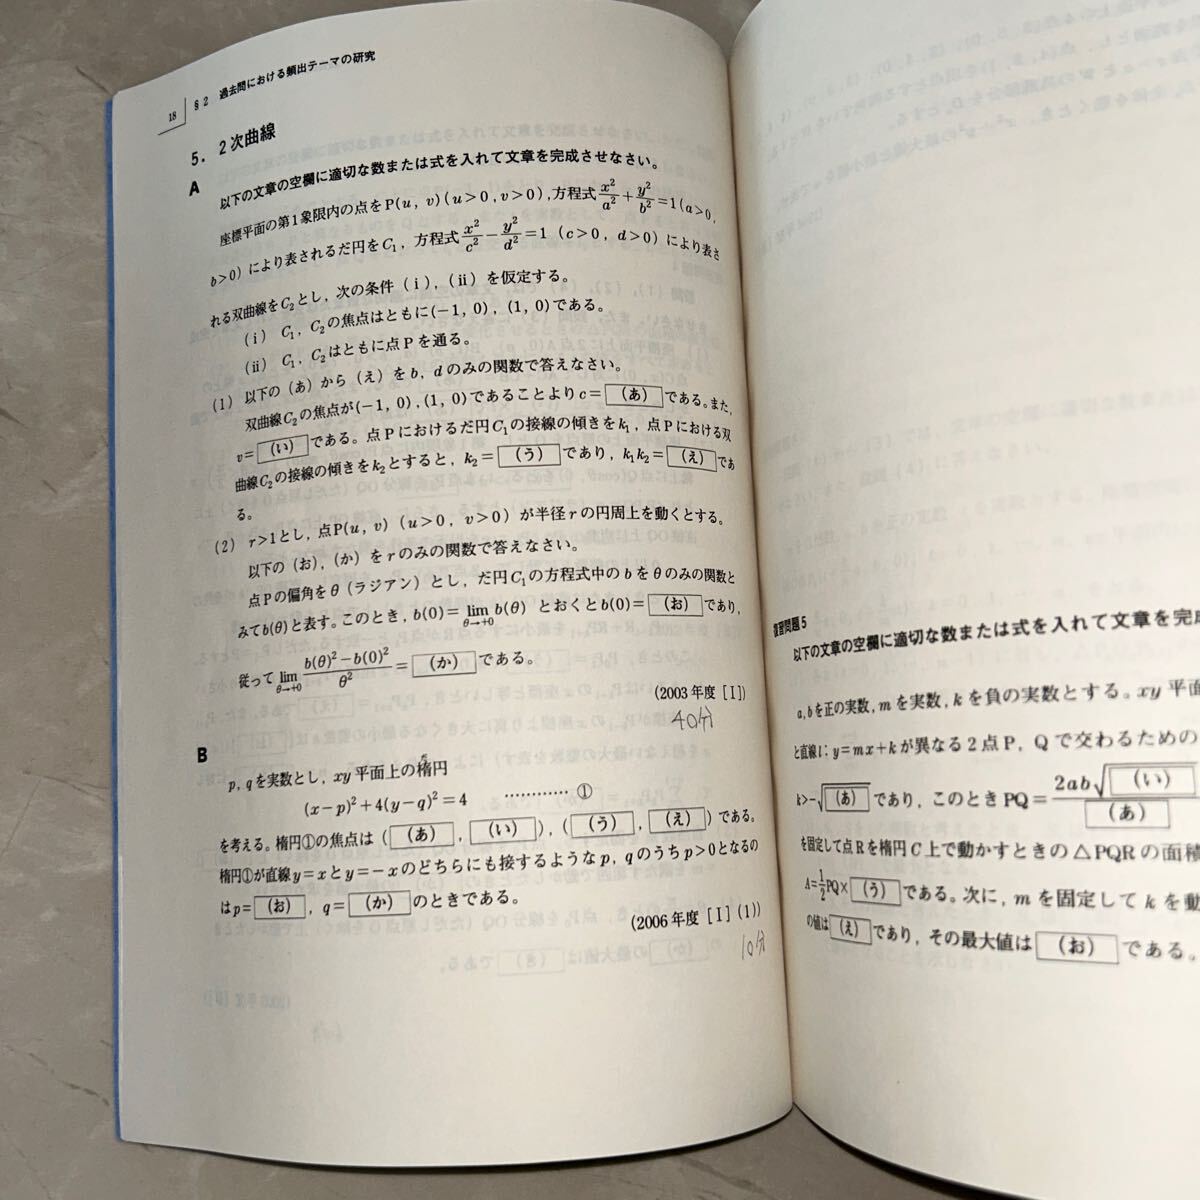 18 §2 過去問における頻出テーマの研究
5. 2次曲線
A 以下の文章の空欄に適切な数または式を入れて文章を完成させなさい。
座標平面の第1象限内の点をP(u, v)(u>0, v>0), 方程式x²/a²+y²/b²=1(a>0,
b>0)により表されるだ円をC₁, 方程式x²/c²−y²/d²=1 (c>0, d>0)により表さ
れる双曲線をC₂とし, 次の条件(i), (ii)を仮定する。
(i) C₁, C₂の焦点はともに(−1, 0), (1, 0)である。
(ii) C₁, C₂はともに点Pを通る。
(1) 以下の(あ)から(え)をb, dのみの関数で答えなさい。
双曲線C₂の焦点が(−1, 0), (1, 0)であることよりc= (あ) である。また,
v= (い) である。点Pにおけるだ円C₁の接線の傾きをk₁, 点Pにおける双
曲線C₂の接線の傾きをk₂とすると, k₂= (う) であり, k₁k₂= (え) であ
る。
(2) r>1とし, 点P(u, v) (u>0, v>0)が半径rの円周上を動くとする。
以下の(お), (か)をrのみの関数で答えなさい。
点Pの偏角をθ(ラジアン)とし, だ円C₁の方程式中のbをθのみの関数と
みてb(θ)と表す。このとき, b(0)=lim θ→+0 b(θ) とおくとb(0)= (お) であり,
従って lim θ→+0 (b(θ)²−b(0)²)/θ² = (か) である。
(2003年度 [I])
40分
B
p, qを実数とし, xy平面上の楕円
だ
(x−p)²+4(y−q)²=4 ………… ①
を考える。楕円①の焦点は( (あ) , (い) ), ( (う) , (え) )である。
楕円①が直線y=xとy=−xのどちらにも接するようなp, qのうちp>0となるの
はp= (お) , q= (か) のときである。
(2006年度 [I](1))
10分
復習問題5
以下の文章の空欄に適切な数または式を入れて文章を完成
a, bを正の実数, mを実数, kを負の実数とする。xy平面
と直線l; y=mx+kが異なる2点P, Qで交わるための
k>−√(あ) であり, このときPQ= 2ab√(い) / (あ)
を固定して点Rを楕円C上で動かすときの△PQRの面積
A=1/2PQ× (う) である。次に, mを固定してkを動
の値は (え) であり, その最大値は (お) である。